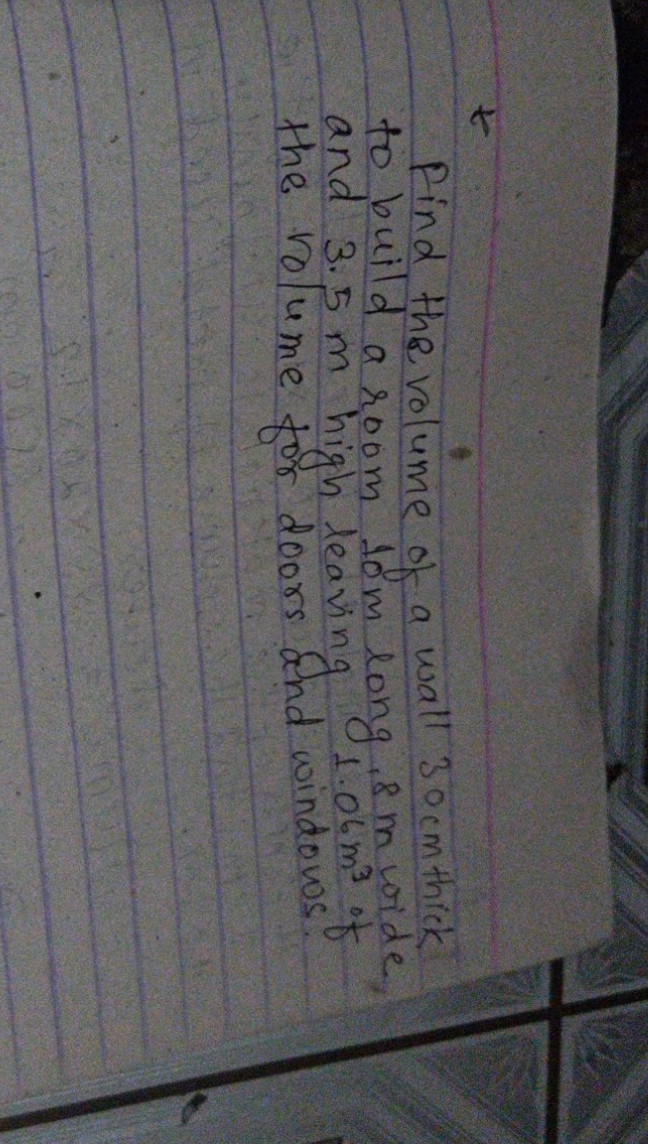 * Find the volume of a wall 30cm thick
to build a room 10m long, 8m wide,
and 3.5 m high leaving 1.06m³ of
the volume for doors and windows.